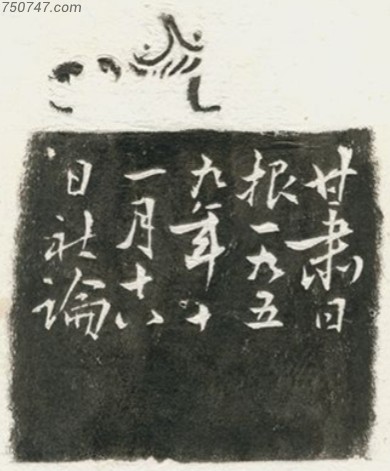 750747.com
甘肃日
根一九五
九年十
一月十八
日社论